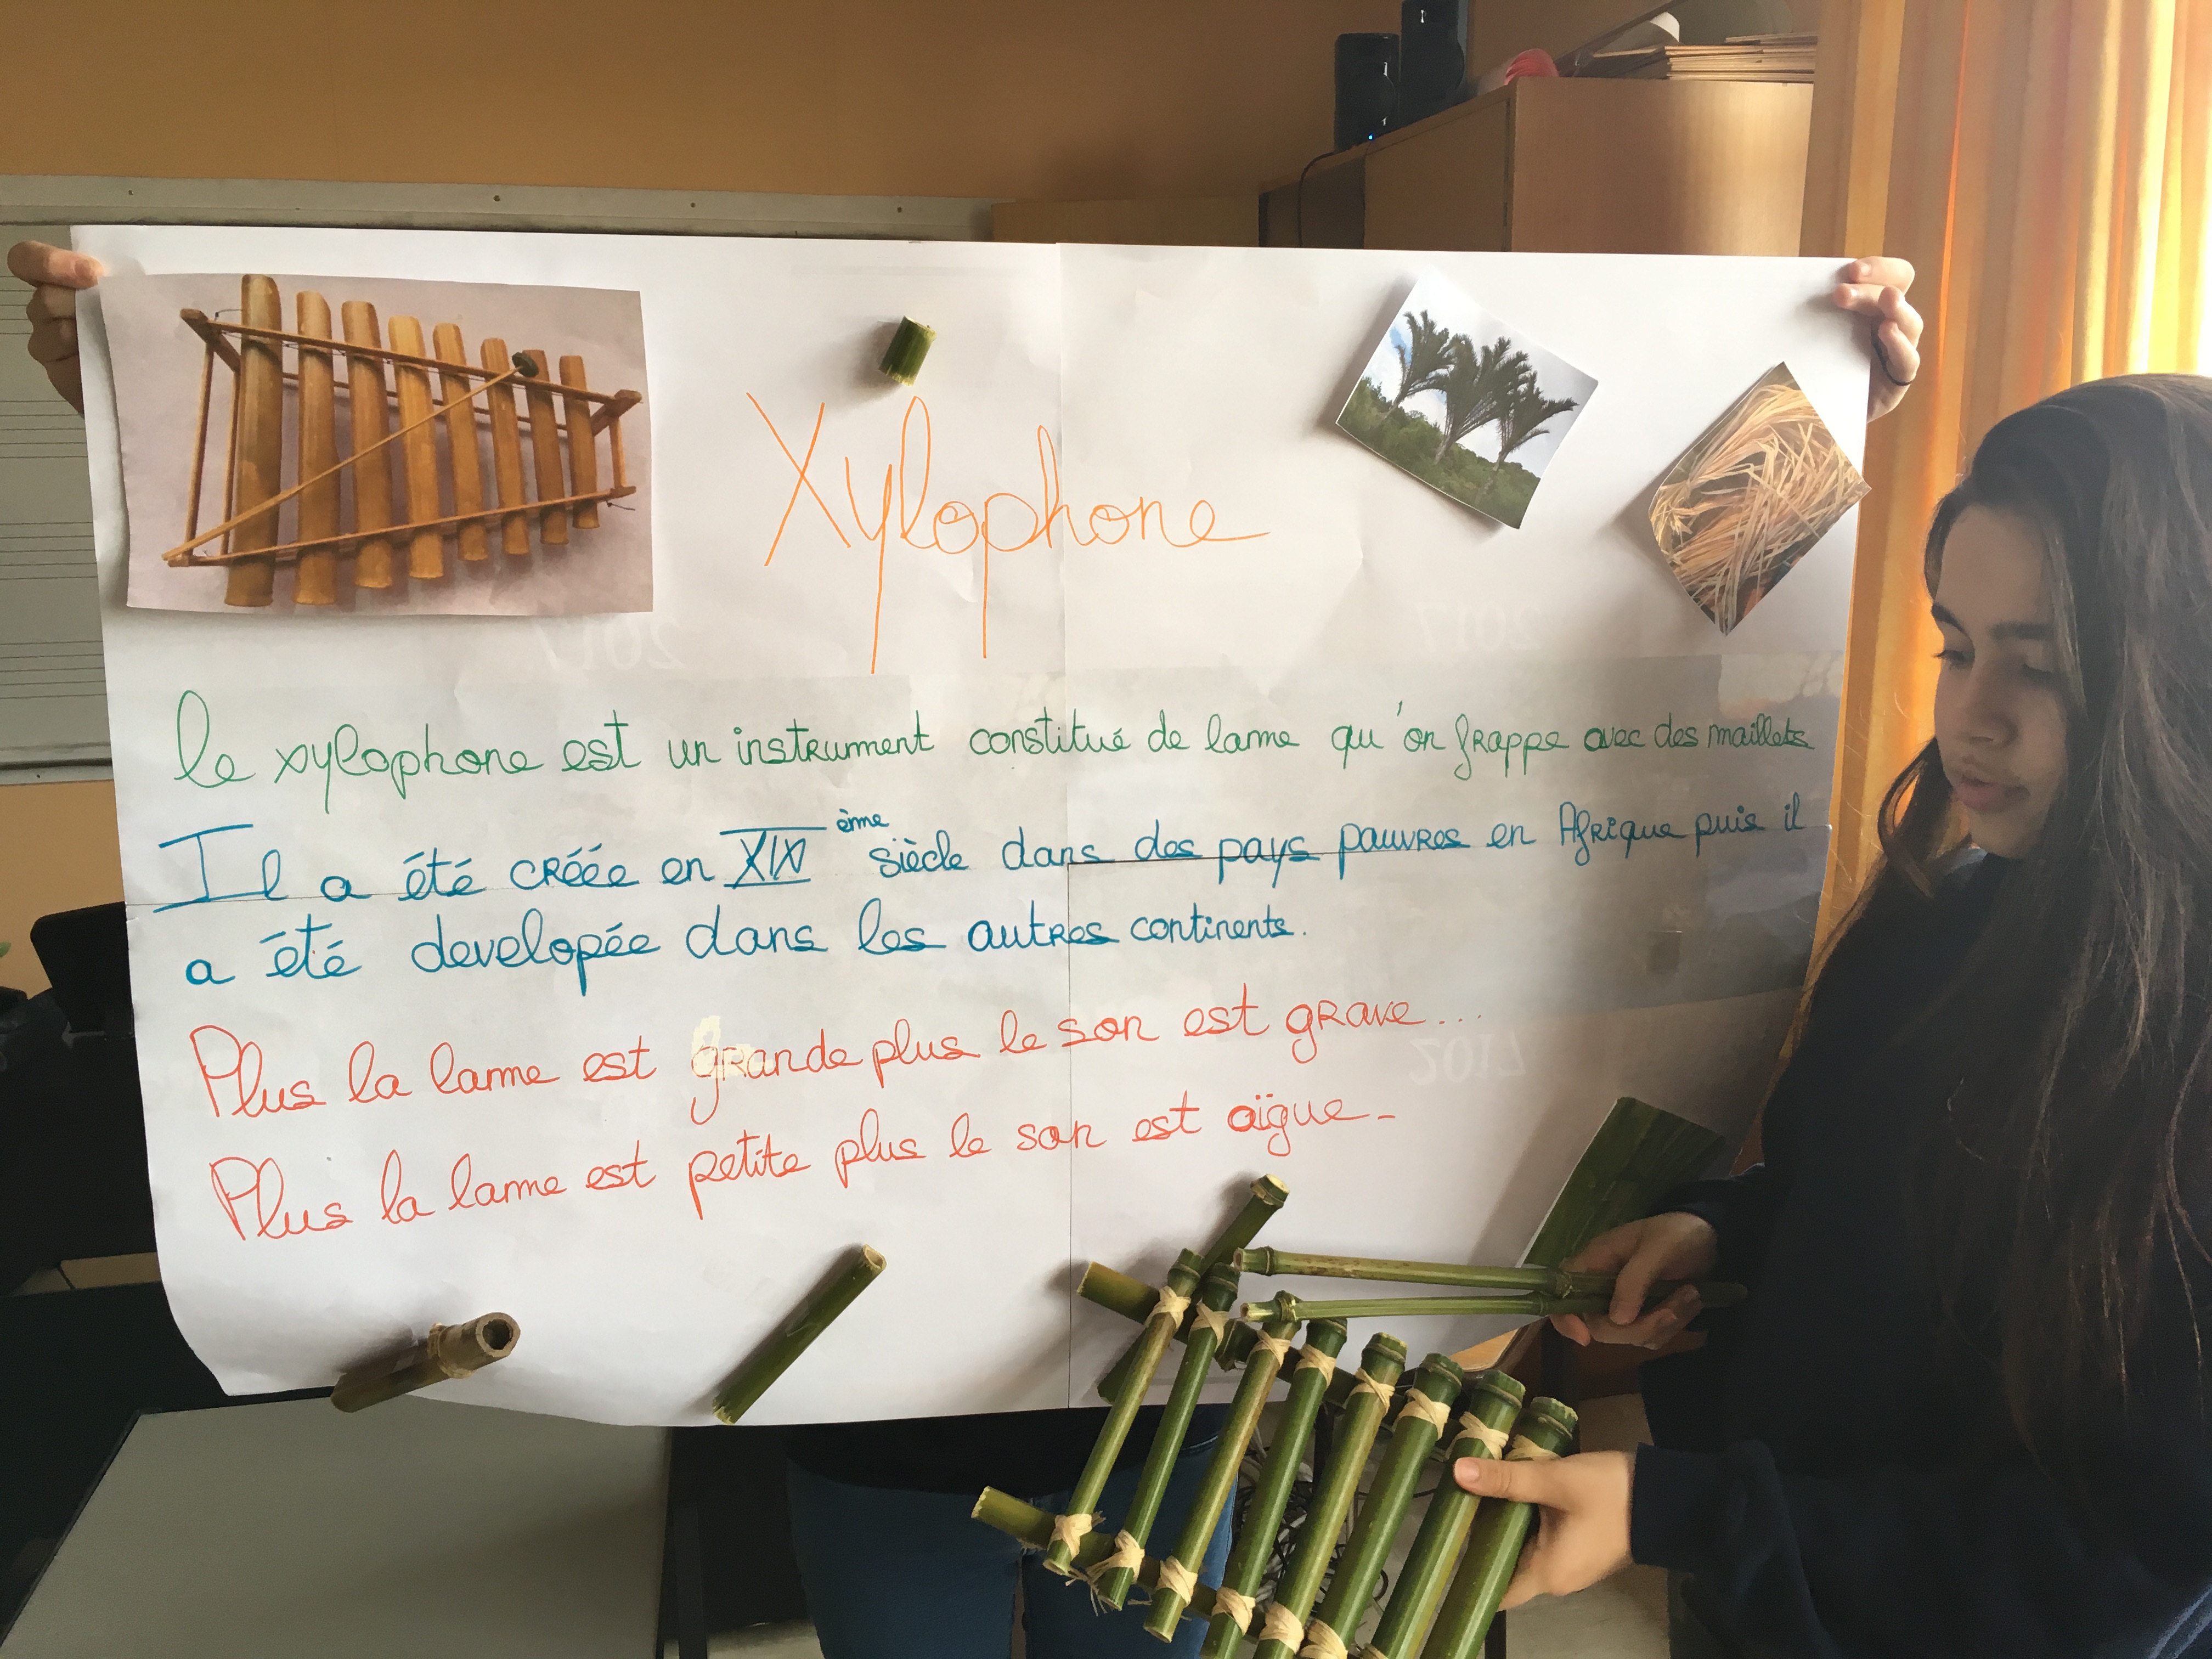 Xylophone
le xylophone est un instrument constitué de lame qu'on frappe avec des maillets
Il a été créée en XIX ème siècle dans des pays pauvres en Afrique puis il
a été developée dans les autres continents.
Plus la lame est grande plus le son est grave...
Plus la lame est petite plus le son est aïgue-
2017
2017
2017